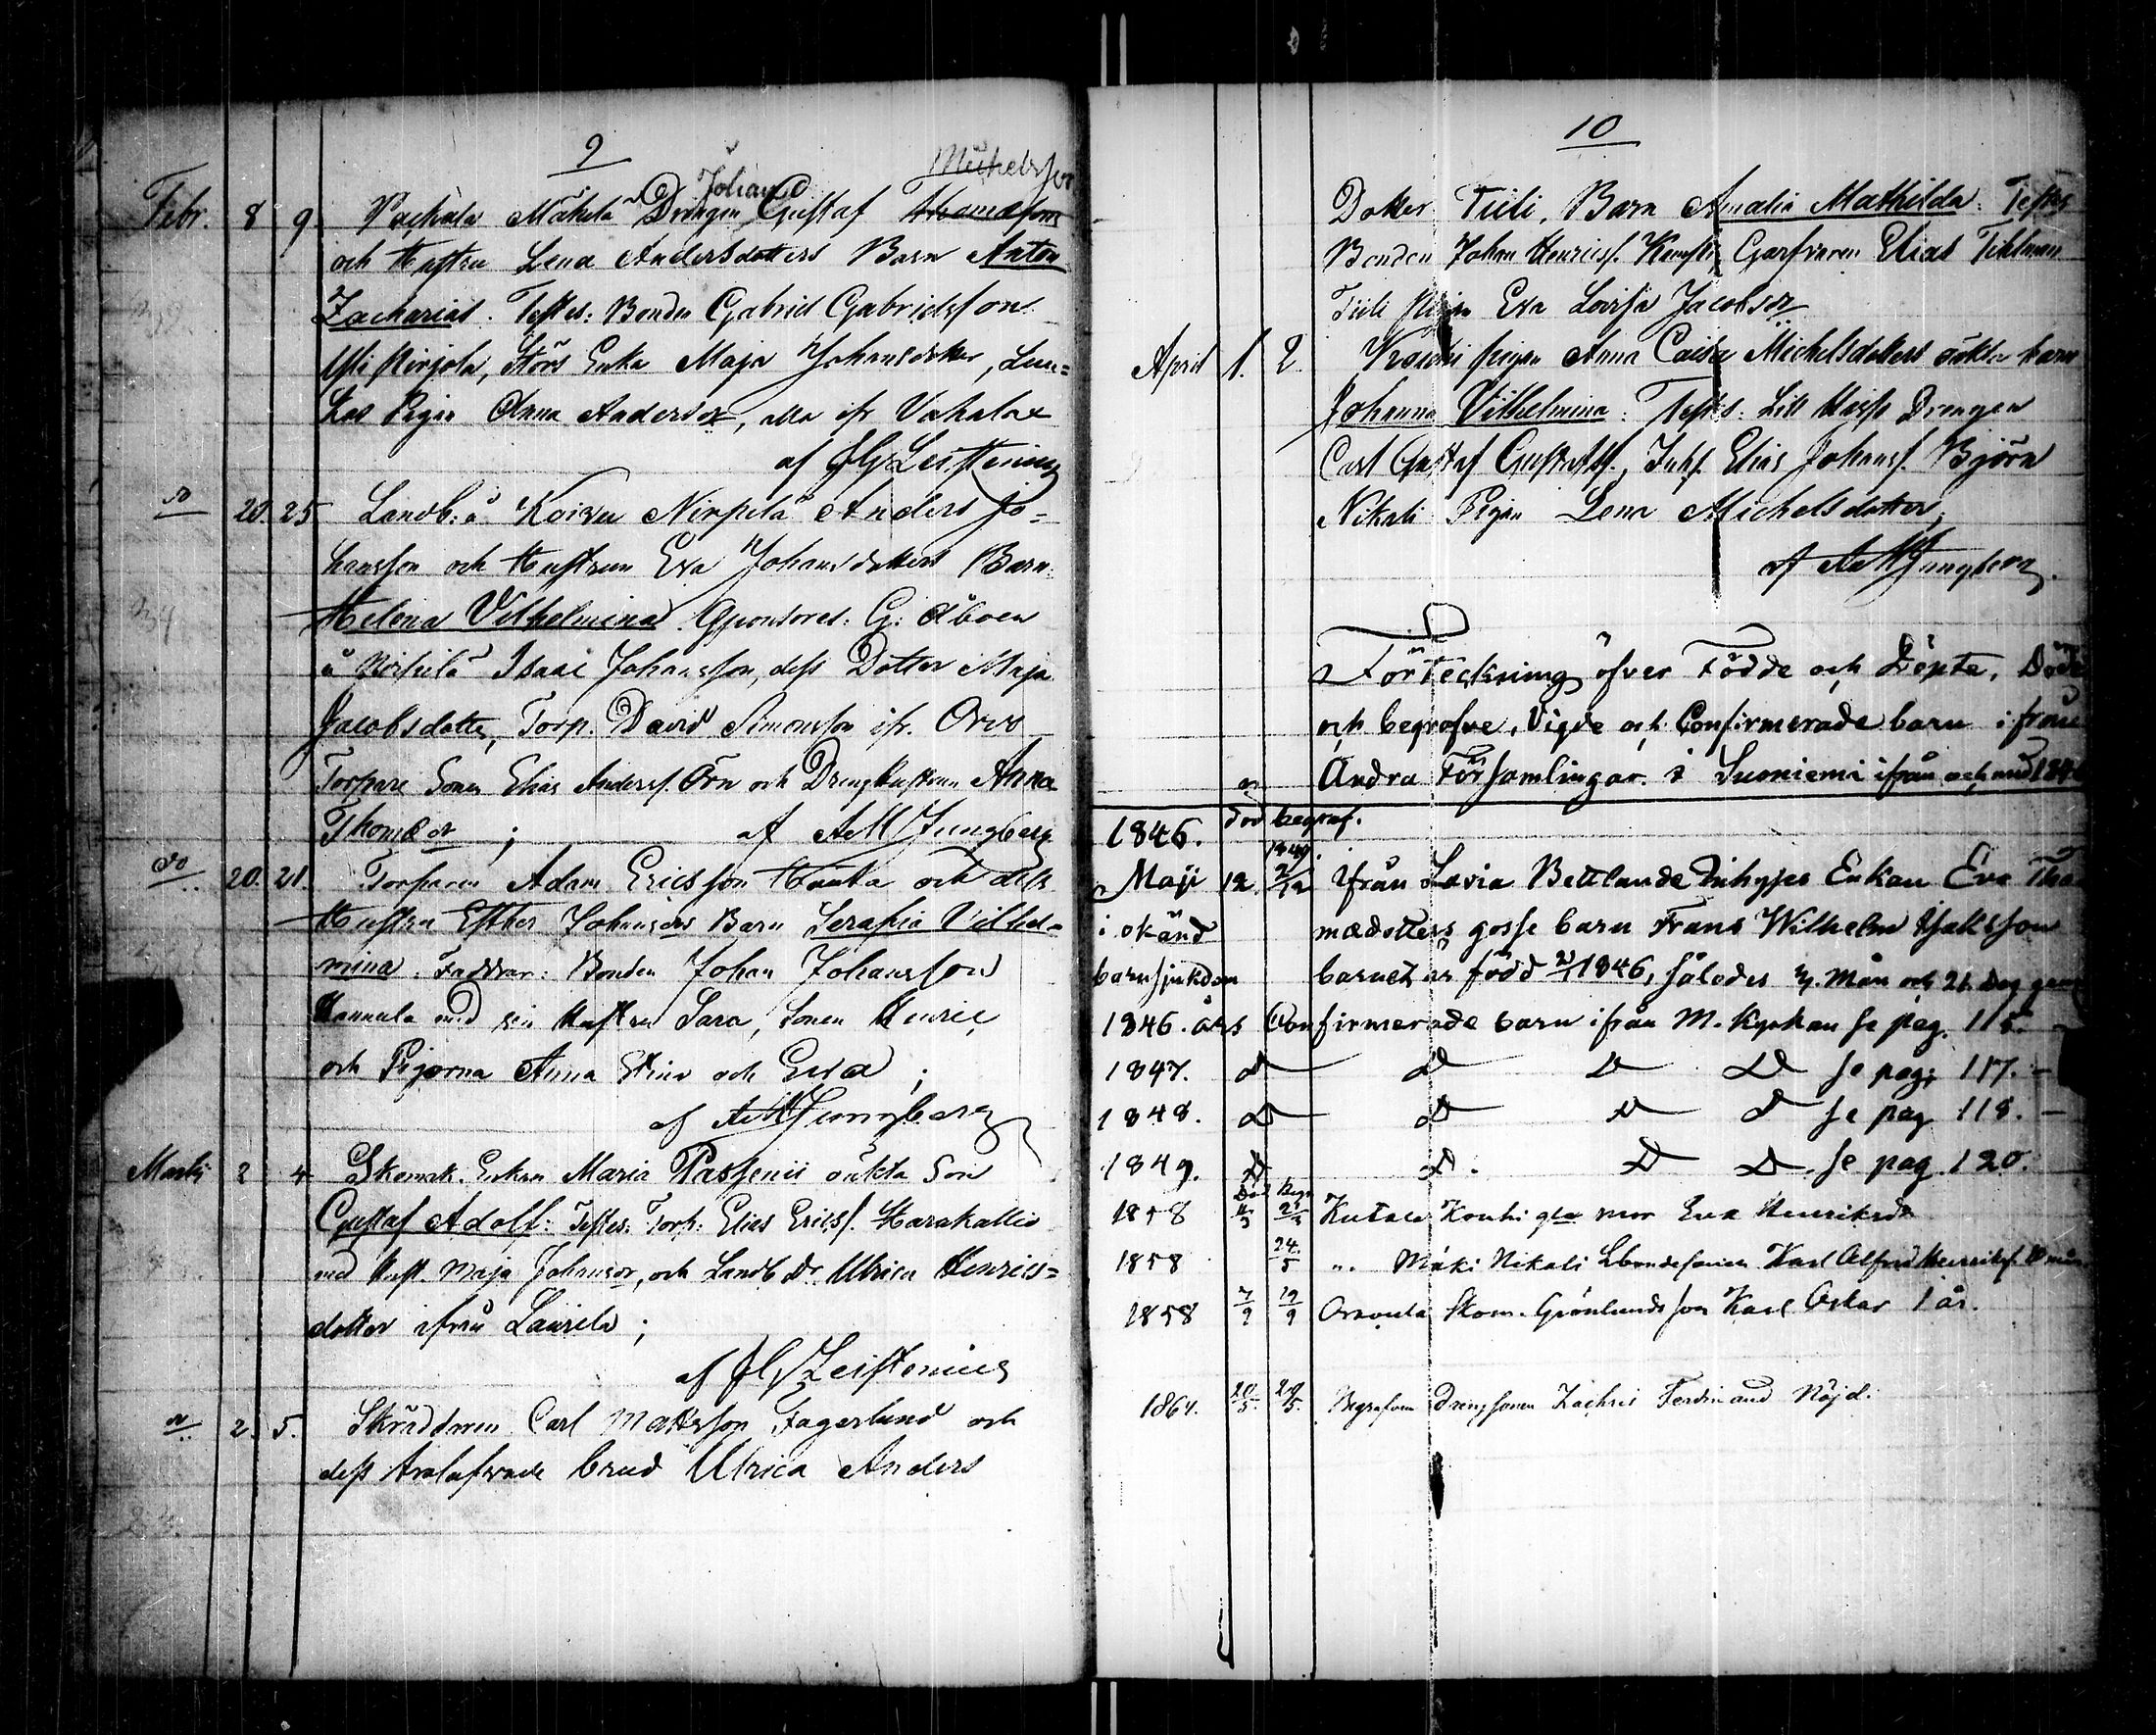 9
Johan Michelsson
Febr. 8 9 Vachala Mäkelä Drengen Gustaf Thomasson
och Hustru Lena Andersdotters Barn Anton
Zacharias. Testes: Bonden Gabriel Gabrielsson
Yli Pirjola, Enka Maja Johansdotter,
Pigan Anna Andersdr, alla ifr. Vahala
af JG Leistenius
20. 25 Landb: å Koivu Nirpilä Anders Jo=
hansson och Hustrun Eva Johansdotters Barn
Helena Vilhelmina. Sponsores: G: Åboen
å Nirpilä Isaac Johansson, dess Dotter Maja
Jacobsdotter, Torp. David Simonsson ifr.
Torpare Sonen Elias Anderss. Örn och Drenghustrun Anna
Thomædr; af AM Ljungberg
Do 20. 21 Torparen Adam Ericsson Hauta och dess
Hustru Esther Johansdrs Barn Serafia Vilhel=
mina. Faddrar: Bonden Johan Johansson
Hannula med sin Hustru Sara, Sonen Henric
och Pigorna Anna Stina och Eva;
af AM Ljungberg
Martii 2 4 Skomak. Enkan Maria oäkta Son
Gustaf Adolf: Testes: Torp: Elias Ericss. Harakallio
med Hust. Maja Johansdr, och Landb. Dr. Ulrica Henrics=
dotter ifrån Laurila;
af JG Leistenius
2. 5. Skräddaren Carl Mattsson Fagerlund och
dess brud Ulrica Anders
10
Dotter Tiili, Barn Amalia Mathilda: Testes
Bonden Johan Henricss. Garfvaren Elias
Tiili Pigan Eva Lovisa Jacobsdr
April 1. 2 pigan Anna Caisa Michelsdotters oäkta barn
Johanna Vilhelmina: Testes: Lill Drengen
Carl Gustaf Gustafss., Inhs. Elias Johanss. Björn
Nikali Pigan Lena Michelsdotter;
af AM Ljungberg.
Förteckning öfver Födde och Döpte, Döde
och begrofve, Vigde och Confirmerade barn ifrån
Andra Församlingar i Suoniemi ifrån och med 184
1846. död begraf.
Maji 12. ifrån Lavia Enkan Eva Tho
i okänd mædotters gosse barn Frans Wilhelm Isaksson
barnsjukdom barnet är född 1846, således Mån och 21. Dag
1846. års Confirmerade barn ifrån M. Kyrkan se pag. 115.
1847. D D D D se pag; 117. -
1848. D D D D se pag 118. -
1849. D D. D D. se pag. 120.
Död begr
1858 Kutala Kouhi mor Eva Henriksdr
1858 24/5 ,, Mäki Nikali Karl Alfred Henrikss. 10 mån
1858 7/9 19/9 Skom. Grönlunds son Karl Oskar 1 år.
1864. 20/5 29/5. Begrafven drengsonen Zachris Ferdinand Nöjd.